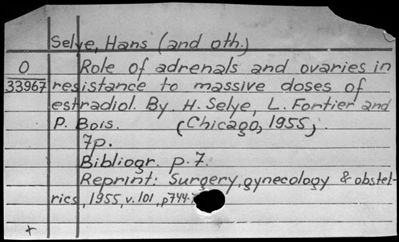 Selye, Hans (and oth.)
O Role of adrenals and ovaries in
33967 resistance to massive doses of
estradiol. By. H. Selye, L. Fortier and
P. Bois. (Chicago, 1955).
7p.
Bibliogr. p. 7.
Reprint: Surgery, gynecology & obstet-
rics, 1955, v. 101, p744-
+